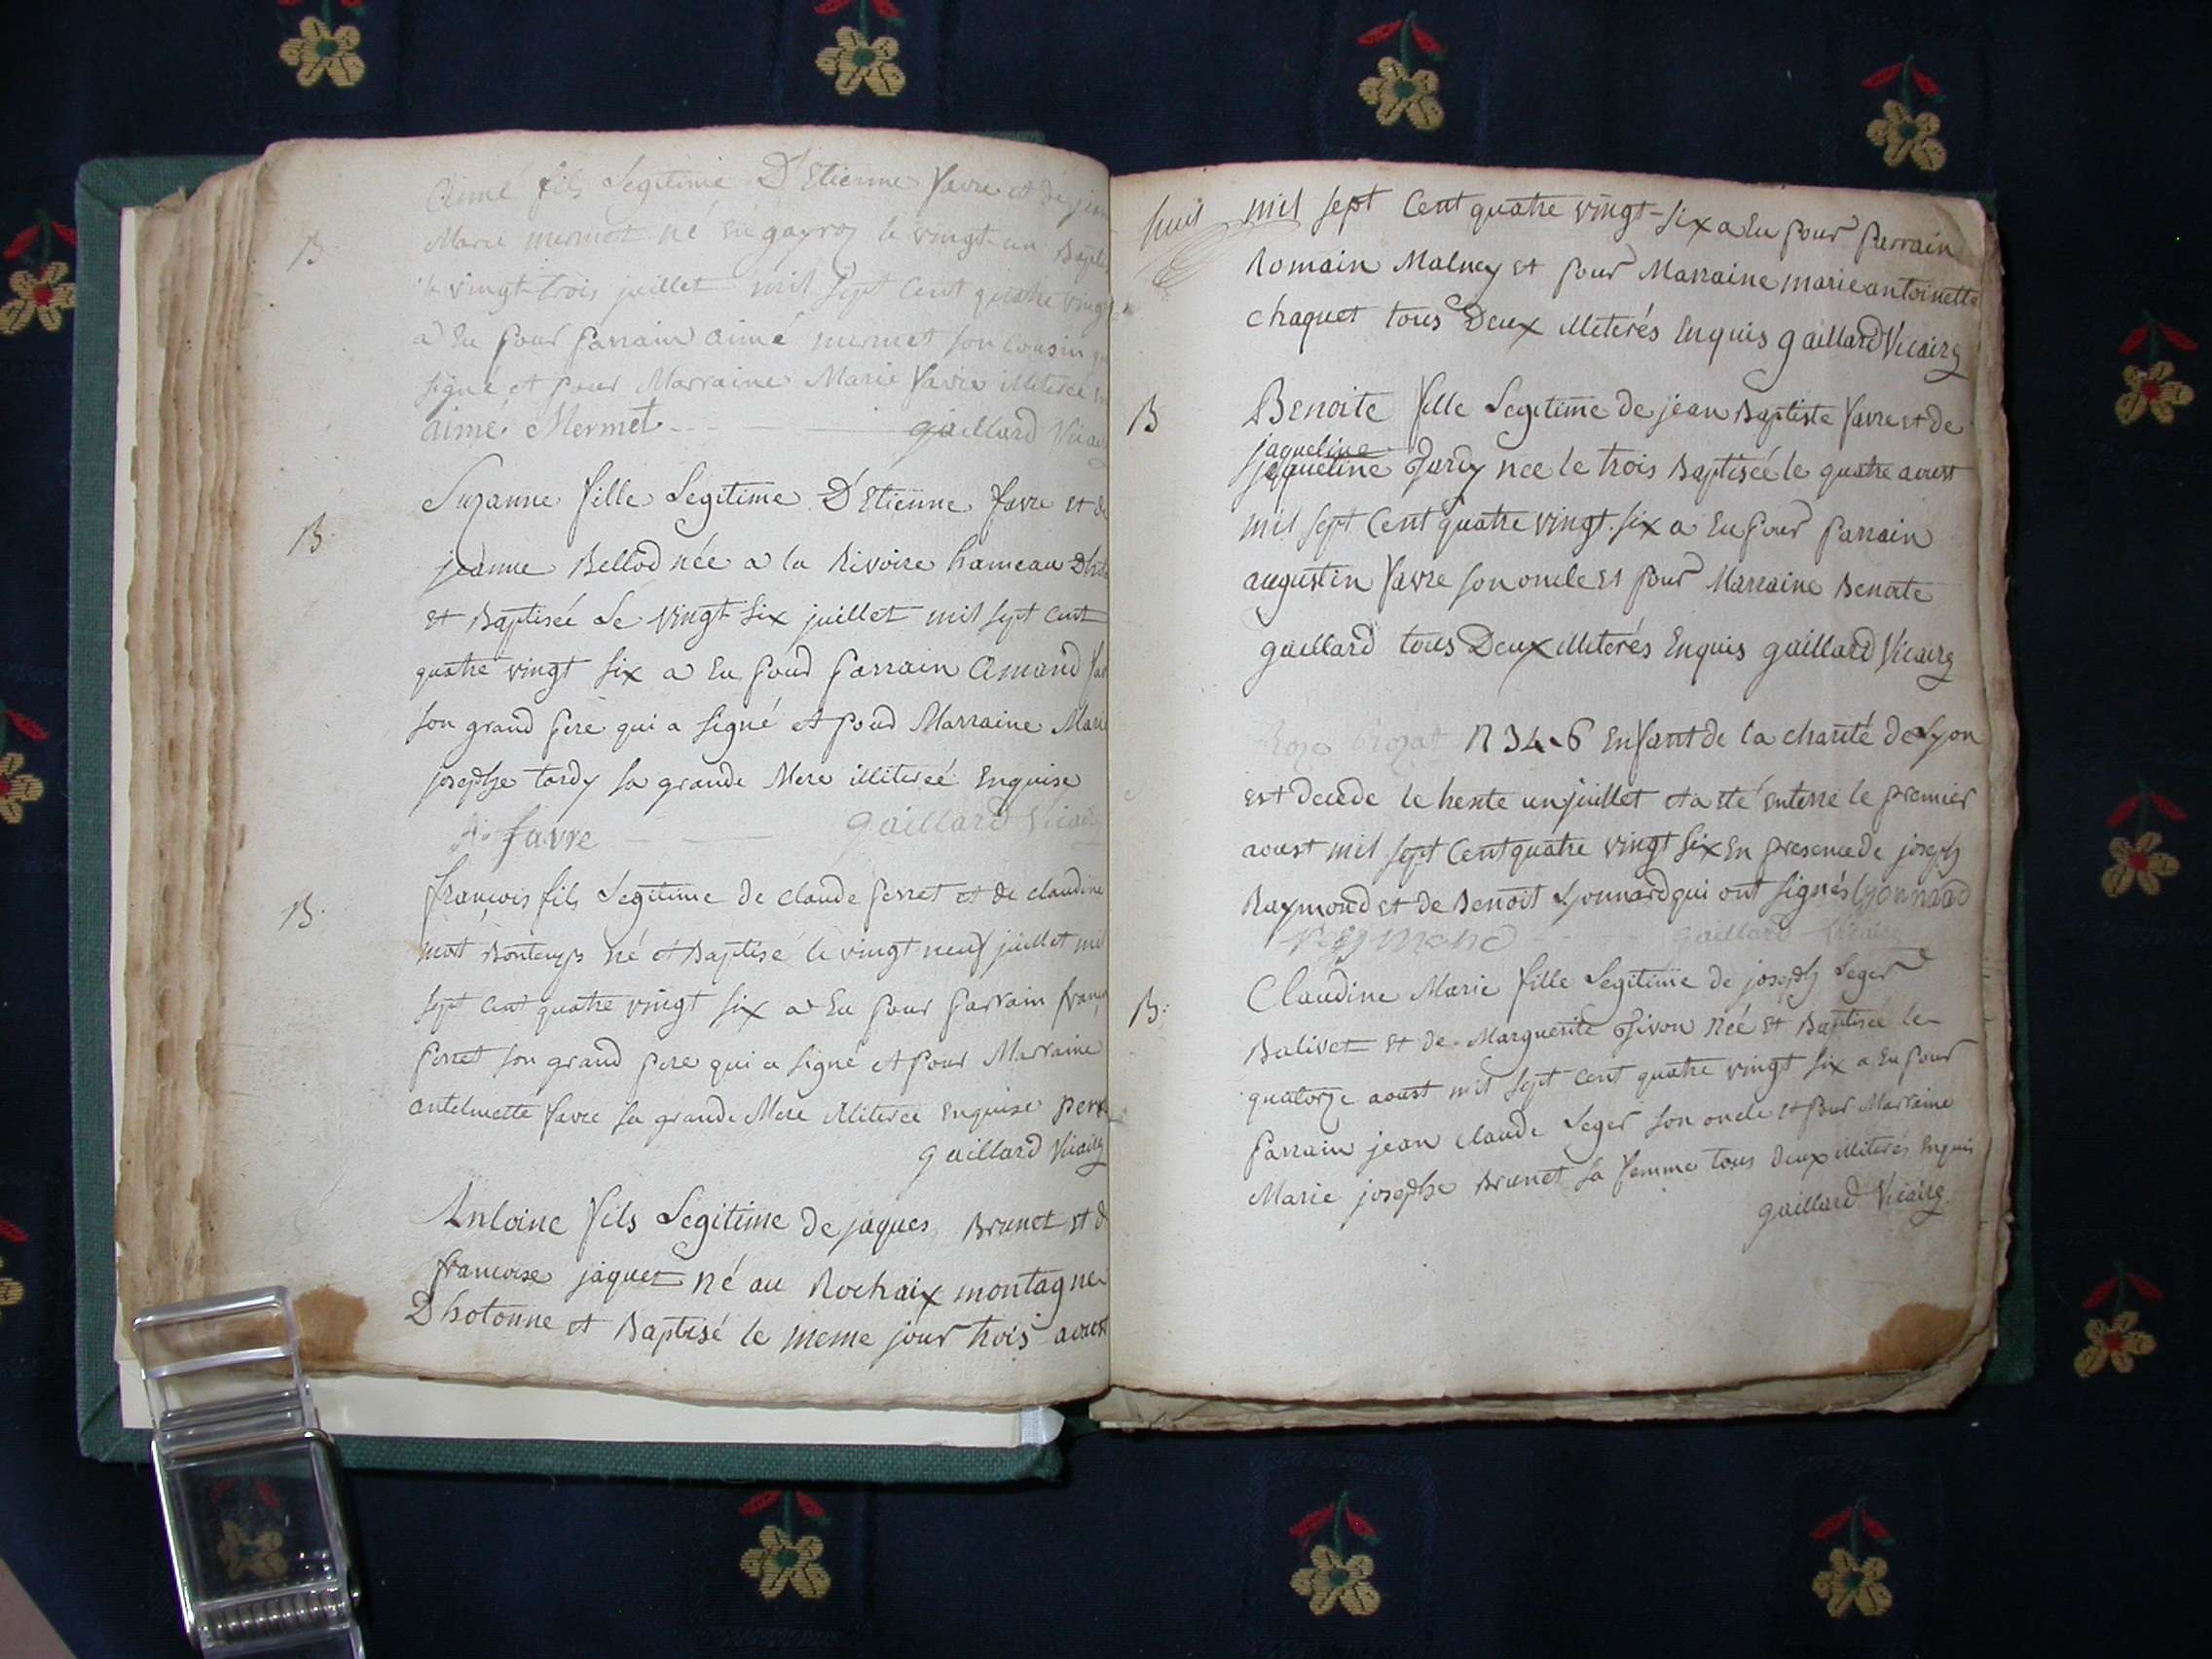 Aimé fils Legitime D'Etienne favre et de
B. Marie mermet né en le vingt-un
le vingt-trois juillet mil sept Cent quatre vingt
a Eu pour parrain aimé mermet son Cousin
signé et pour Marraine Marie favre illiteréé
aimé Mermet gaillard Vicaire
Suzanne fille Legitime D'Etienne favre et de
B. jeanne Bellod née a la Rivoire hameau
et Baptiséé Le vingt six juillet mil sept cent
quatre vingt six a Eu pour parrain Amand
son grand pere qui a signé et pour Marraine Marie
josephe tardy sa grande Mere illiteréé Enquise
favre gaillard Vicaire
B. françois fils Legitime de claude perret et de claudine
mort Bontemps né et Baptisé le vingt neuf juillet mil
sept cent quatre vingt six a Eu pour parrain
perret son grand pere qui a signé et pour Marraine
antelmette favre sa grande Mere illiteree enquise
gaillard Vicaire
Antoine fils Legitime de jaques Brunet et
francoise jaquet né au Rochaix montagne
Dhotonne et Baptisé le meme jour trois aoust
mil sept Cent quatre vingt-six a Eu pour parrain
Romain Malney et pour Marraine marie antoinette
chaquet tous Deux illiterés Enquis gaillard Vicaire
B Benoite fille Legitime de jean Baptiste favre et de
jaqueline
jaqueline née le trois Baptiséé le quatre aoust
mil sept Cent quatre vingt six a Eu pour parrain
augustin favre son oncle et pour Marraine Benoite
gaillard tous Deux illiterés Enquis gaillard Vicaire
Enfant de la charité de Lyon
est decede le trente un juillet et a eté enterré le premier
aoust mil sept Cent quatre vingt six En presence de joseph
Raymond et de Benoit Lyonnard qui ont signés lyonnard
reymond gaillard Vicaire
Claudine Marie fille Legitime de joseph Leger
B: Balivet et de Marguerite Néé et Baptiséé le
quatorze aoust mil sept cent quatre vingt six a Eu pour
parrain jean claude Leger son oncle et pour Marraine
Marie josephe Brunet sa femme tous deux illiterés Enquis
gaillard Vicaire